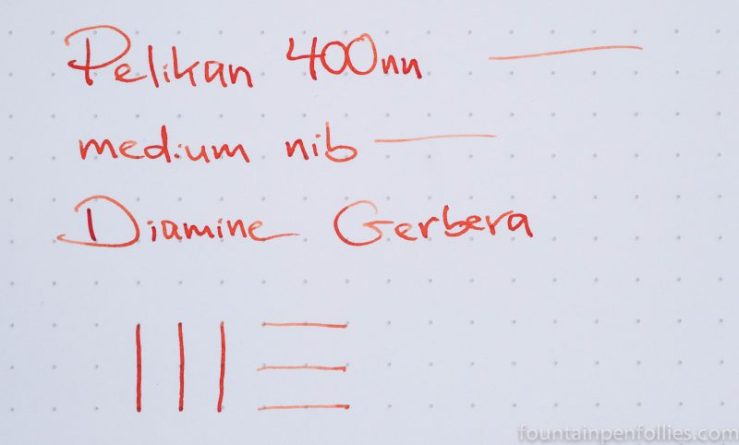 Pelikan 400nn
medium nib
Diamine Gerbera
fountainpenfollies.com